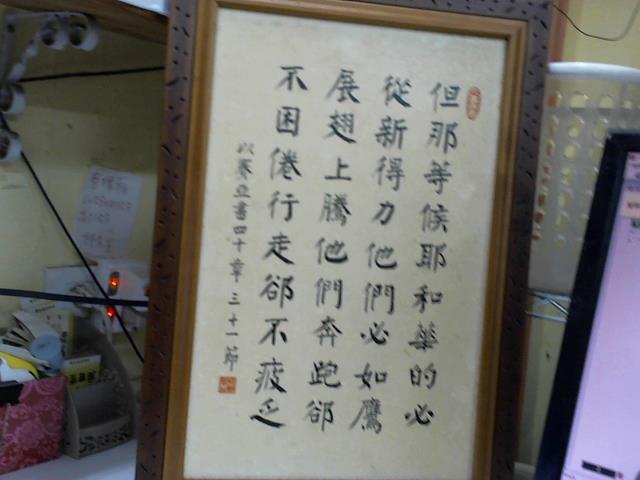 但那等候耶和華的必
從新得力他們必如鷹
展翅上騰他們奔跑卻
不困倦行走卻不疲乏
以賽亞書四十章三十一節